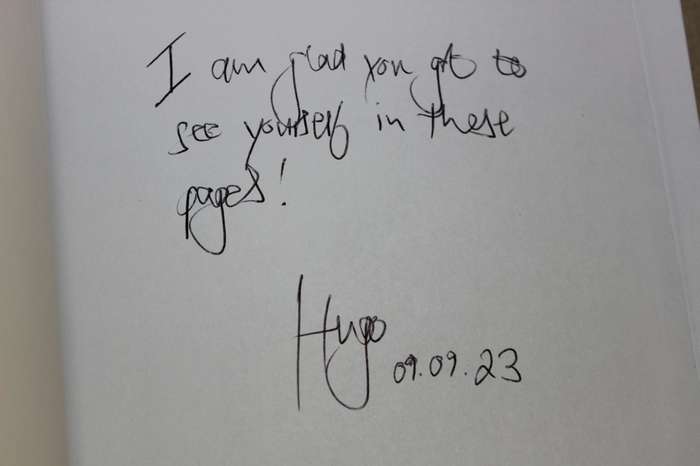 I am glad you got to
see yourself in these
pages!
Hugo
09.09.23